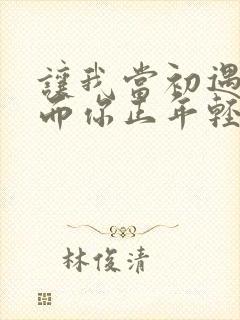 讓我當初遇
而你正年輕
林俊清